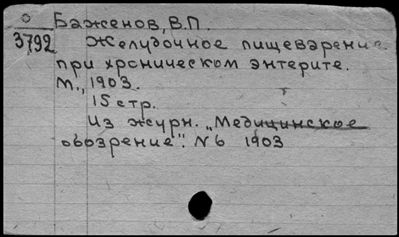 Баженов, В.П.
3792 Желудочное пищеварение
при хроническом энтерите.
М., 1903.
15 стр.
Из журн. „Медицинское
обозрение". N 6 1903